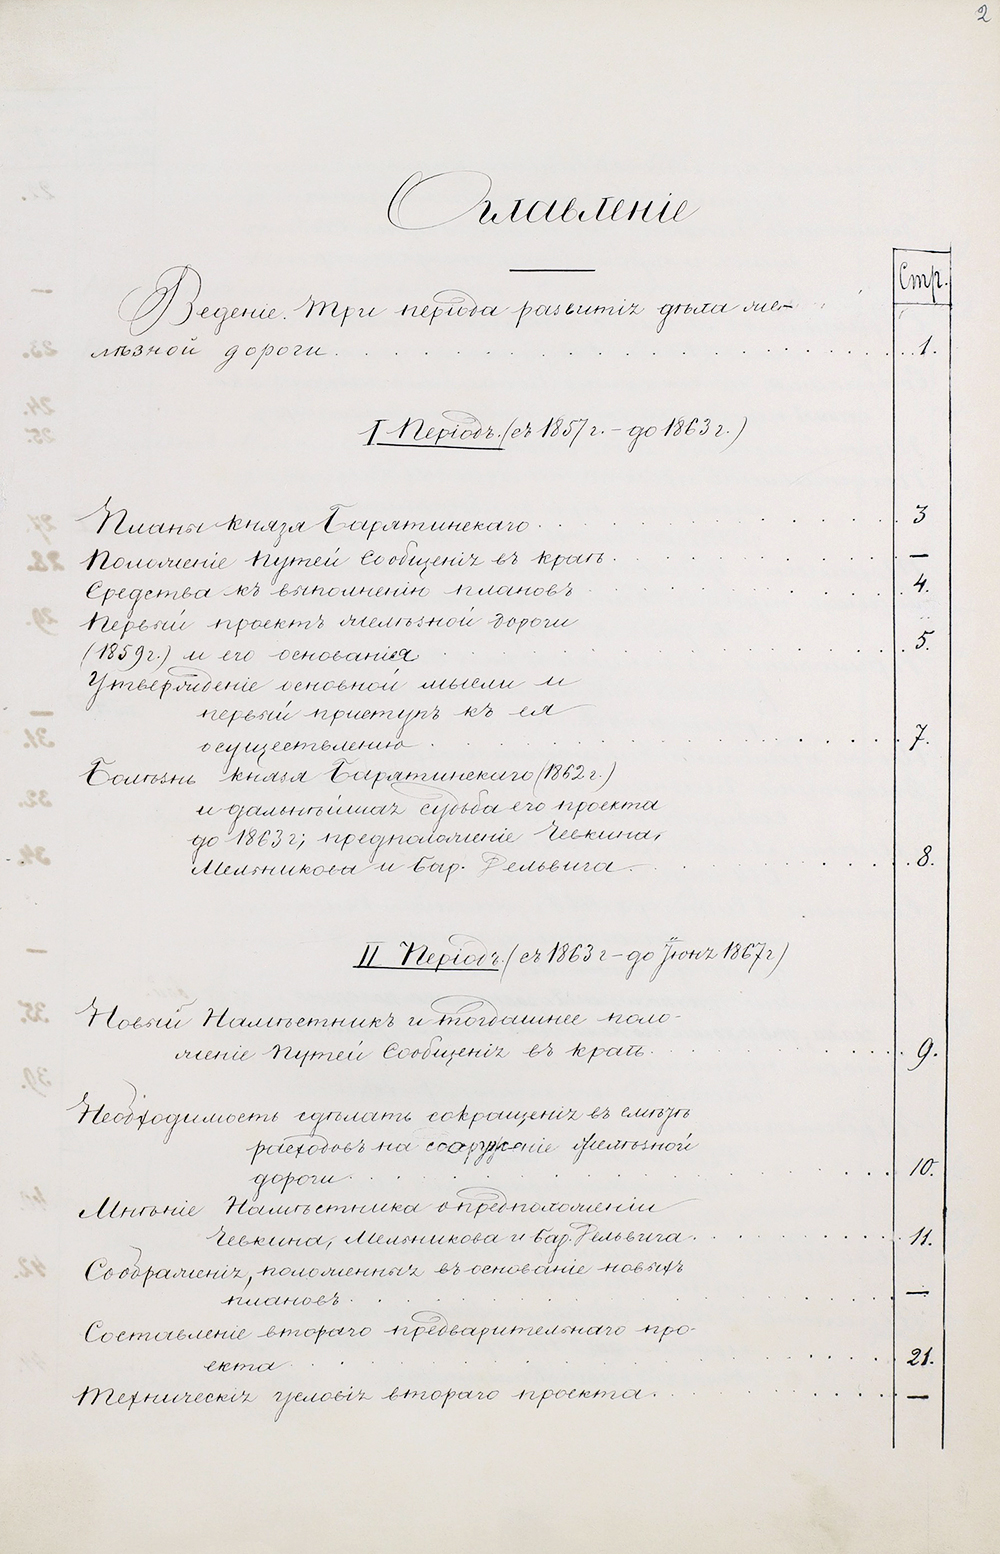 2
Оглавленіе
Стр.
Ведение. Три періода развитія дѣла же-
лѣзной дороги . . . 1.
I Періодъ. (съ 1857 г. – до 1863 г.)
Планы Князя Барятинскаго . . . 3
Положеніе Путей Сообщенія въ краѣ . . . —
Средства къ выполненію плановъ . . . 4.
Первый проектъ желѣзной дороги
(1859 г.) и его основанія . . . 5.
Утвержденіе основной мысли и
первый приступъ къ ея
осуществленію . . . 7.
Болѣзнь Князя Барятинскаго (1862 г.)
и дальнѣйшая судьба его проекта
до 1863 г; предположеніе Чевкина,
Мельникова и Бар. Дельвига . . . 8.
II Періодъ. (съ 1863 г – до Іюня 1867 г)
Новый Намѣстникъ и тогдашнее поло-
женіе Путей Сообщенія въ краѣ . . . 9.
Необходимость сдѣлать сокращенія въ смѣтѣ
расходовъ на сооруженіе желѣзной
дороги . . . 10.
Мнѣніе Намѣстника о предположеніи
Чевкина, Мельникова и Бар. Дельвига . . . 11.
Соображенія, положенныя въ основаніе новыхъ
плановъ . . . —
Составленіе втораго предварительнаго про-
екта . . . 21.
Техническія условія втораго проекта . . . —